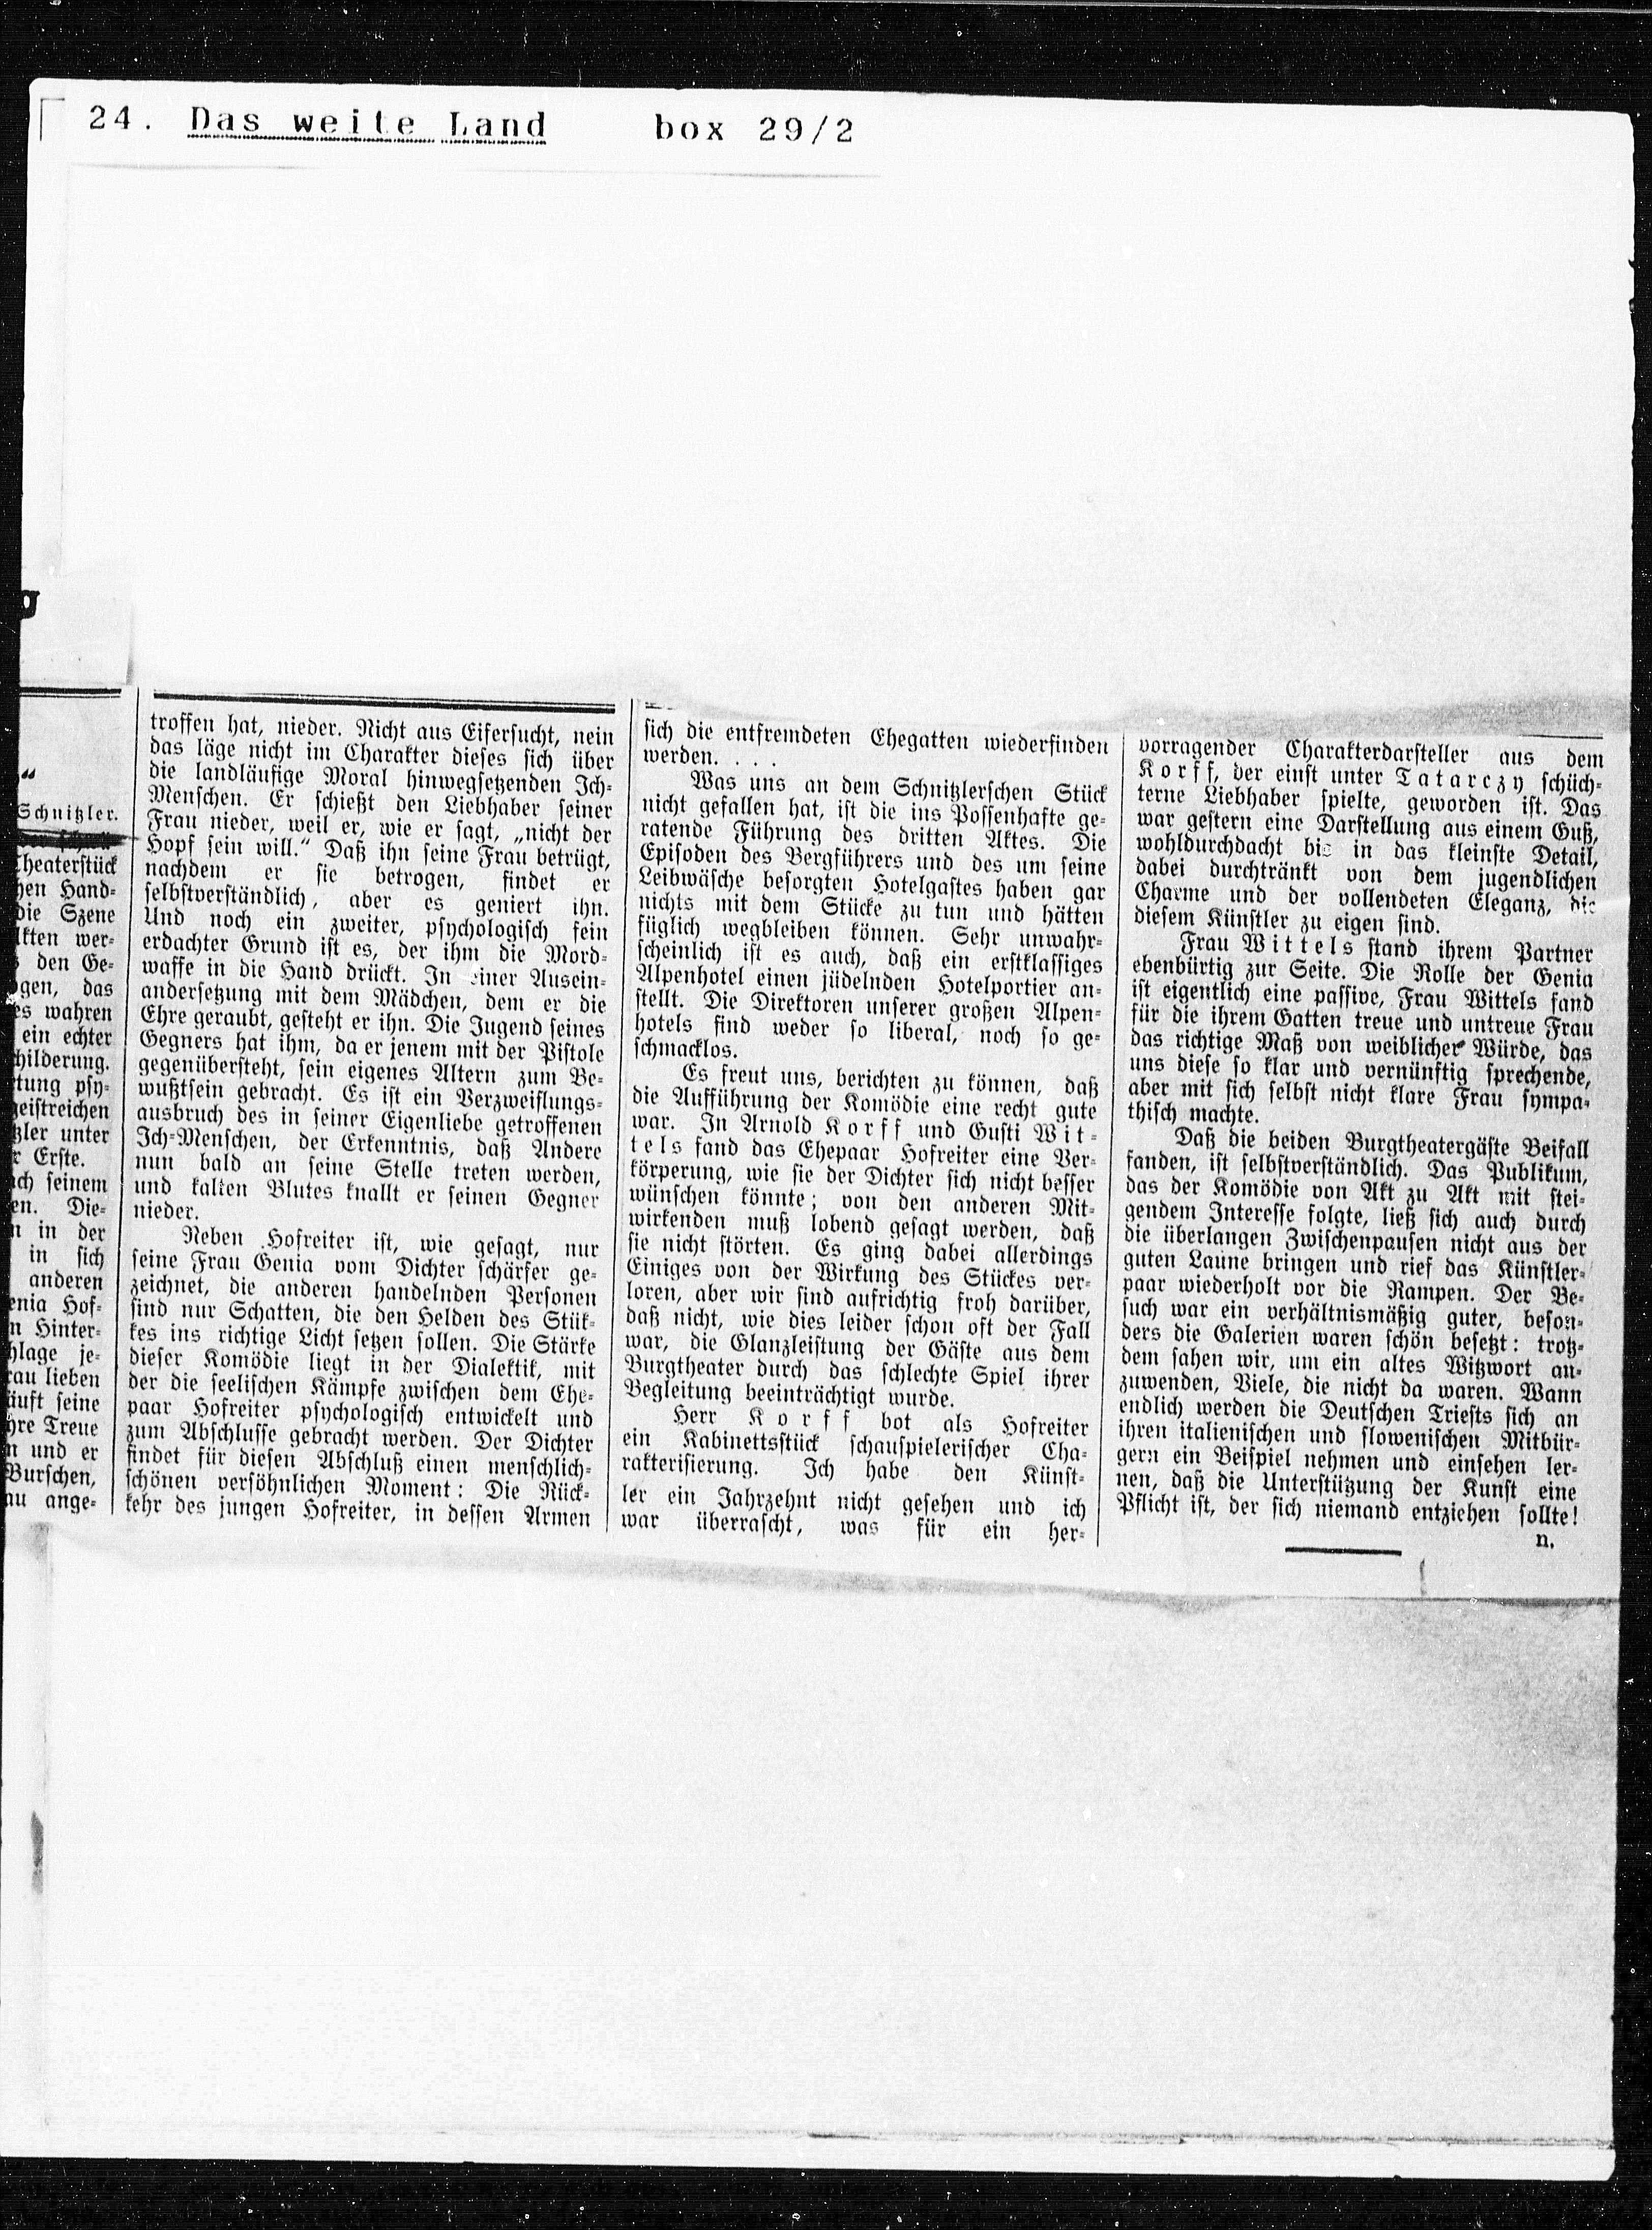 24. Das weite Land box 29/2
g
“
Schnitzler.
heaterstück
hen Hand-
die Szene
kten wer-
den Ge-
gen, das
es wahren
ein echter
hilderung.
tung psy-
geistreichen
tzler unter
r Erste.
ch seinem
en. Die-
n in der
in sich
anderen
enia Hof-
n Hinter-
hlage je-
rau lieben
äuft seine
hre Treue
n und er
Burschen,
au ange-
troffen hat, nieder. Nicht aus Eifersucht, nein
das läge nicht im Charakter dieses sich über
die landläufige Moral hinwegsetzenden Ich-
Menschen. Er schießt den Liebhaber seiner
Frau nieder, weil er, wie er sagt, „nicht der
Hopf sein will.“ Daß ihn seine Frau betrügt,
nachdem er sie betrogen, findet er
selbstverständlich, aber es geniert ihn.
Und noch ein zweiter, psychologisch fein
erdachter Grund ist es, der ihm die Mord-
waffe in die Hand drückt. In einer Ausein-
andersetzung mit dem Mädchen, dem er die
Ehre geraubt, gesteht er ihn. Die Jugend seines
Gegners hat ihm, da er jenem mit der Pistole
gegenübersteht, sein eigenes Altern zum Be-
wußtsein gebracht. Es ist ein Verzweiflungs-
ausbruch des in seiner Eigenliebe getroffenen
Ich-Menschen, der Erkenntnis, daß Andere
nun bald an seine Stelle treten werden,
und kalten Blutes knallt er seinen Gegner
nieder.
Neben Hofreiter ist, wie gesagt, nur
seine Frau Genia vom Dichter schärfer ge-
zeichnet, die anderen handelnden Personen
sind nur Schatten, die den Helden des Stük-
kes ins richtige Licht setzen sollen. Die Stärke
dieser Komödie liegt in der Dialektik, mit
der die seelischen Kämpfe zwischen dem Ehe-
paar Hofreiter psychologisch entwickelt und
zum Abschlusse gebracht werden. Der Dichter
findet für diesen Abschluß einen menschlich-
schönen versöhnlichen Moment: Die Rück-
kehr des jungen Hofreiter, in dessen Armen
sich die entfremdeten Ehegatten wiederfinden
werden. . . .
Was uns an dem Schnitzlerschen Stück
nicht gefallen hat, ist die ins Possenhafte ge-
ratende Führung des dritten Aktes. Die
Episoden des Bergführers und des um seine
Leibwäsche besorgten Hotelgastes haben gar
nichts mit dem Stücke zu tun und hätten
füglich wegbleiben können. Sehr unwahr-
scheinlich ist es auch, daß ein erstklassiges
Alpenhotel einen jüdelnden Hotelportier an-
stellt. Die Direktoren unserer großen Alpen-
hotels sind weder so liberal, noch so ge-
schmacklos.
Es freut uns, berichten zu können, daß
die Aufführung der Komödie eine recht gute
war. In Arnold Korff und Gusti Wit-
tels fand das Ehepaar Hofreiter eine Ver-
körperung, wie sie der Dichter sich nicht besser
wünschen könnte; von den anderen Mit-
wirkenden muß lobend gesagt werden, daß
sie nicht störten. Es ging dabei allerdings
Einiges von der Wirkung des Stückes ver-
loren, aber wir sind aufrichtig froh darüber,
daß nicht, wie dies leider schon oft der Fall
war, die Glanzleistung der Gäste aus dem
Burgtheater durch das schlechte Spiel ihrer
Begleitung beeinträchtigt wurde.
Herr Korff bot als Hofreiter
ein Kabinettsstück schauspielerischer Cha-
rakterisierung. Ich habe den Künst-
ler ein Jahrzehnt nicht gesehen und ich
war überrascht, was für ein her-
vorragender Charakterdarsteller aus dem
Korff, der einst unter Tatarczy schüch-
terne Liebhaber spielte, geworden ist. Das
war gestern eine Darstellung aus einem Guß,
wohldurchdacht bis in das kleinste Detail,
dabei durchtränkt von dem jugendlichen
Charme und der vollendeten Eleganz, die
diesem Künstler zu eigen sind.
Frau Wittels stand ihrem Partner
ebenbürtig zur Seite. Die Rolle der Genia
ist eigentlich eine passive, Frau Wittels fand
für die ihrem Gatten treue und untreue Frau
das richtige Maß von weiblicher Würde, das
uns diese so klar und vernünftig sprechende,
aber mit sich selbst nicht klare Frau sympa-
thisch machte.
Daß die beiden Burgtheatergäste Beifall
fanden, ist selbstverständlich. Das Publikum,
das der Komödie von Akt zu Akt mit stei-
gendem Interesse folgte, ließ sich auch durch
die überlangen Zwischenpausen nicht aus der
guten Laune bringen und rief das Künstler-
paar wiederholt vor die Rampen. Der Be-
such war ein verhältnismäßig guter, beson-
ders die Galerien waren schön besetzt: trotz-
dem sahen wir, um ein altes Witzwort an-
zuwenden, Viele, die nicht da waren. Wann
endlich werden die Deutschen Triests sich an
ihren italienischen und slowenischen Mitbür-
gern ein Beispiel nehmen und einsehen ler-
nen, daß die Unterstützung der Kunst eine
Pflicht ist, der sich niemand entziehen sollte!
n.